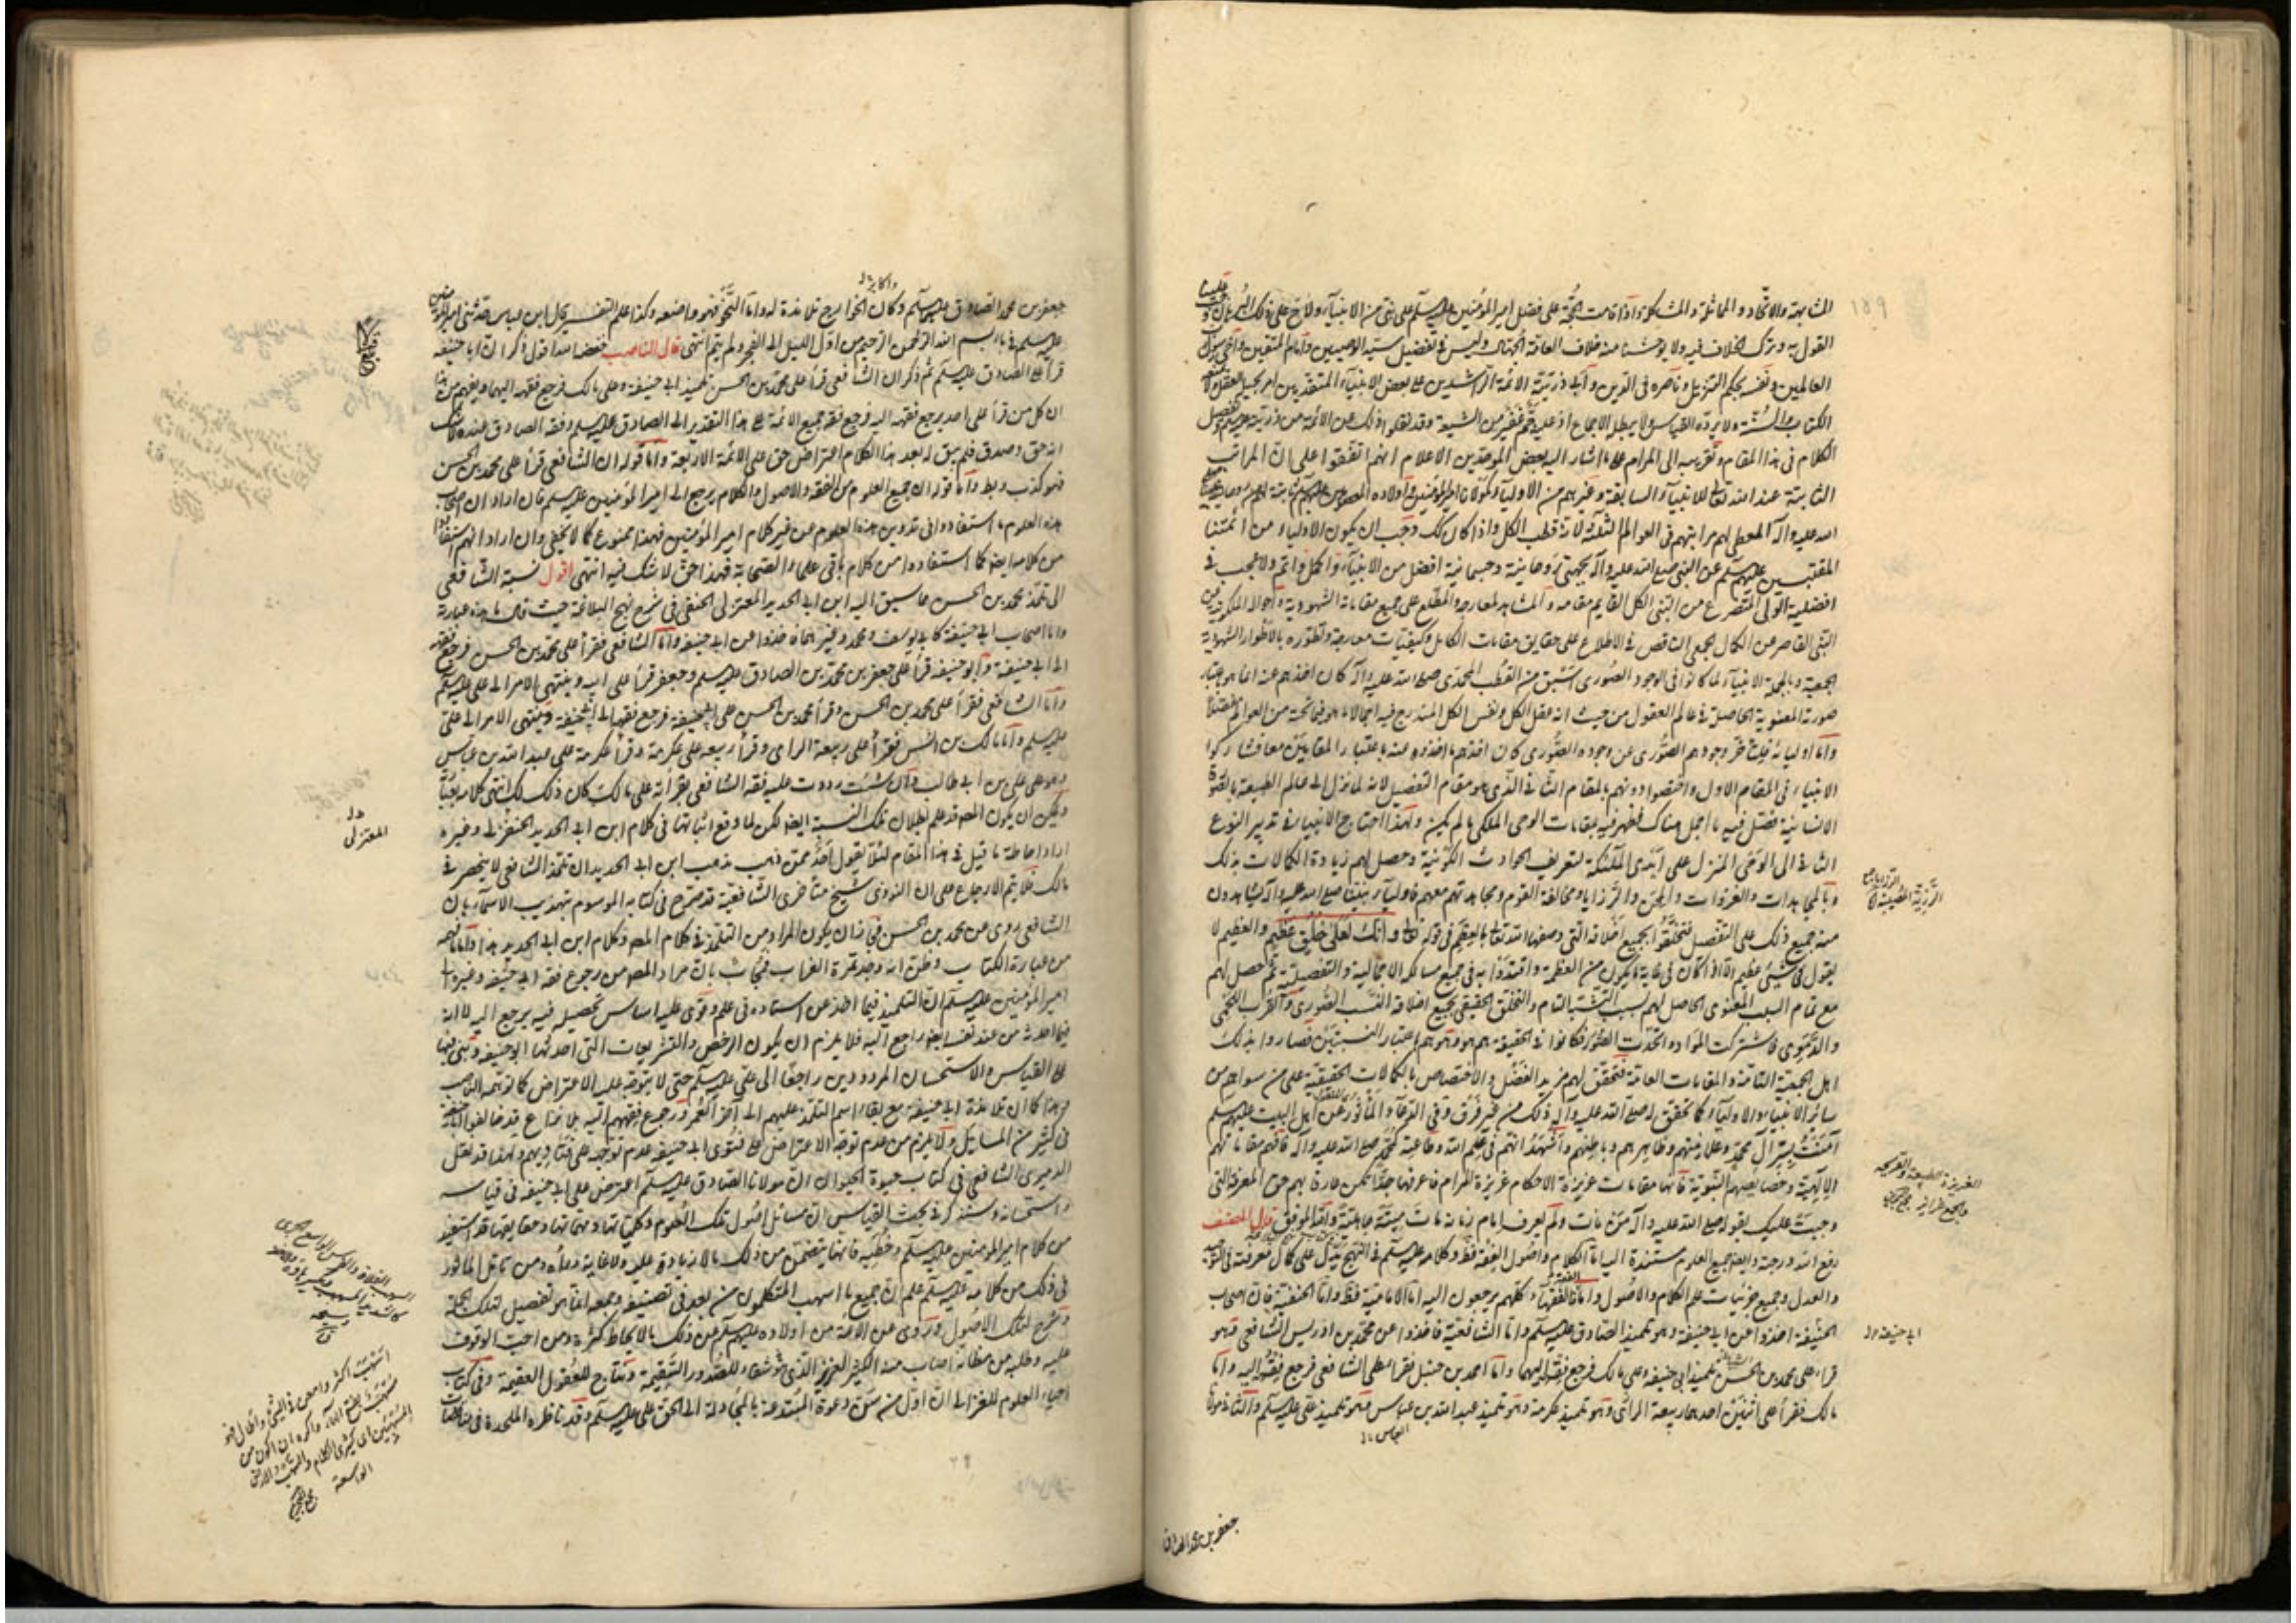 ١٥٩
المشابهة والاتحاد والمماثلة والمشاكلة واذا قامت الحجة على فضل امير المؤمنين عليه السلم على نبي من الانبياء ولاح على ذلك البرهان وجب علينا
القول به وترك الخلاف فيه ولا يوحشنا منه خلاف العامة الجهال وليس في تفضيل سيد الوصيين وامام المتقين واخي رسول
العالمين ونفسه بحكم التنزيل وناصره في الدين وابي ذريته الائمة الراشدين على بعض الانبياء المتقدمين امر يحيله العقل ولا
الكتاب والسنة ولا يرده القياس ولا يبطله الاجماع اذ عليه جم غفير من الشيعة وقد نقلوا ذلك عن الائمة من ذريته عليهم السلم
الكلام في هذا المقام وتقريبه الى المرام على ما اشار اليه بعض الموحدين الاعلام انهم اتفقوا على ان المراتب
الثابتة عند الله تعالى للانبياء السابقة وغيرهم من الاولياء كمولانا امير المؤمنين واولاده المعصومين عليهم السلم
الله عليه وآله المعطي لهم مراتبهم في العوالم الثلثة لانه قطب الكل واذا كان كك وجب ان يكون الاولياء من امتنا
المقتبسين عليهم السلم عن النبي صلى الله عليه وآله بجهتي روحانية وجسمانية افضل من الانبياء واكمل واتم ولا عجب في
افضلية الولي المتضرع من النبي الكل القايم مقامه والمشاهد لمعارجه والمطلع على جميع مقاماته الشهودية واحواله الملكوتية من
النبي القاصر عن الكمال الجمعي الناقص في الاطلاع على حقايق مقامات الكامل وكيفيات معارجه وتطوره بالاطوار الشهودية
الجمعية وبالجملة الانبياء لما كانوا في الوجود الصوري اسبق من القطب المحمدي صلى الله عليه وآله كان اخذهم عنه انما هو باعتبار
صورته المعنوية الحاصلة في عالم العقول من حيث انه عقل الكل ونفس الكل المندرج فيه اجمالا ما هو فيما تحته من العوالم مفصلا
واما اولياؤه فلتأخر وجودهم الصوري عن وجوده الصوري كان اخذهم ما اخذوه منه باعتبار المقامين معا فشاركوا
الانبياء في المقام الاول واختصوا دونهم بالمقام الثاني الذي هو مقام التفصيل لانه لما نزل الى عالم الطبيعة بالصورة
الانسانية فصل فيه ما اجمل هناك فظهر فيه بمقامات الوحي الملكي ما لم يكن ولهذا احتاج الانبياء في تدبير النوع
الثاني الى الوحي المنزل على ايدي الملئكة لتعريف الحوادث الكونية وحصل لهم زيادة الكمالات بذلك
وبالمجاهدات والغزوات والمحن والرزايا ومخالفة القوم ومجاهدتهم معهم فاولياء نبينا صلى الله عليه وآله يشاهدون
منه جميع ذلك على التفصيل فتخلقوا بجميع اخلاقه التي وصفها الله تعالى بالعظم في قوله تعالى وانك لعلى خلق عظيم والعظيم لا
يقول في شيئ عظيم الا اذا كان في غاية ما يكون من العظمة واقتدوا به في جميع مسالكه الاجمالية والتفصيلية ثم حصل لهم
مع تمام النسب المعنوي الحاصل لهم بسبب التشبه التام والتخلق الحقيقي بجميع اخلاقه النسب الصوري والقرب اللحمي
والدموي فاشتركت المواد واتحدت الصور فكانوا في الحقيقة هم هو وهو هم باعتبار النسبتين فصاروا بذلك
اهل الجمعية التامة والمقامات العامة فتحقق لهم مزيد الفضل والاختصاص بالكمالات الحقيقية على من سواهم من
سائر الانبياء والاولياء كما تحقق له صلى الله عليه وآله ذلك من غير فرق وفي الدعاء المأثور عن اهل البيت عليهم السلم
آمنت بسر آل محمد وعلانيتهم وظاهرهم وباطنهم واشهد انهم في علم الله وطاعته كمحمد صلى الله عليه وآله فافهم مقاماتهم
الالهية وخصايصهم النبوية فانها مقامات عزيزة الاحكام غزيرة المرام فاعرفها جدا تكن عارفا بهم حق المعرفة التي
وجبت عليك بقوله صلى الله عليه وآله من مات ولم يعرف امام زمانه مات ميتة جاهلية والله الموفق قال المصنف
رفع الله درجته والعلم جميع العلوم مستندة اليه اما الكلام واصول الفقه فظ وكلامه عليه السلم في النهج يدل على كمال معرفته في التوحيد
والعدل وجميع جزئيات علم الكلام والاصول واما الفقه فالفقهاء كلهم يرجعون اليه اما الامامية فظ واما الحنفية فان اصحاب
ابي حنيفة اخذوا عن ابي حنيفة وهو تلميذ الصادق عليه السلم واما الشافعية فاخذوا عن محمد بن ادريس الشافعي وهو
قرأ على محمد بن الحسن تلميذ ابي حنيفة وعلى مالك فرجع فقهه اليهما واما احمد بن حنبل فقرأ على الشافعي فرجع فقهه اليه واما
مالك فقرأ على اثنين احدهما ربيعة الرأي وهو تلميذ عكرمة وهو تلميذ عبد الله بن عباس وهو تلميذ علي عليه السلم والثاني مولانا
العباس
الرزايا جمع
الرزية المصيبة
الغريزة الطبيعة والقريحة
والجمع غرائز
ابي حنيفة
جعفر بن محمد الصادق
جعفر بن محمد الصادق عليه السلم وكان الخوارج تلامذة له واما النحو فهو واضعه وكذا علم التفسير قال ابن عباس حدثني امير المؤمنين
عليه السلم في باء بسم الله الرحمن الرحيم من اول الليل الى الفجر ولم يتم انتهى قال الناصب خفضه الله اقول ذكر ان ابا حنيفة
قرأ على الصادق عليه السلم ثم ذكر ان الشافعي قرأ على محمد بن الحسن تلميذ ابي حنيفة وعلى مالك فرجع فقهه اليهما ويفهم من هذا
ان كل من قرأ على احد يرجع فقهه اليه فرجع فقه جميع الائمة على هذا التقدير الى الصادق عليه السلم وفقه الصادق عنده لا شك
انه حق وصدق فلم يبق له بعد هذا الكلام اعتراض حق على الائمة الاربعة واما قوله ان الشافعي قرأ على محمد بن الحسن
فهو كذب وبط واما قوله ان جميع العلوم من الفقه والاصول والكلام يرجع الى امير المؤمنين عليه السلم فان اراد ان اصحاب
هذه العلوم ما استفادوا في تدوين هذه العلوم من غير كلام امير المؤمنين فهذا ممنوع كما لا يخفى وان اراد انهم استفادوا
من كلامه ايضا كما استفادوا من كلام باقي علماء الصحابة فهذا حق لا شك فيه انتهى اقول نسبة الشافعي
الى تلمذ محمد بن الحسن مما سبق اليه ابن ابي الحديد المعتزلي الحنفي في شرح نهج البلاغة حيث قال ما هذه عبارته
واما اصحاب ابي حنيفة كابي يوسف ومحمد وغيرهما فاخذوا عن ابي حنيفة واما الشافعي فقرأ على محمد بن الحسن فرجع فقهه
الى ابي حنيفة وابو حنيفة قرأ على جعفر بن محمد بن الصادق عليه السلم وجعفر قرأ على ابيه وينتهي الامر الى علي عليه السلم
واما الشافعي فقرأ على محمد بن الحسن وقرأ محمد بن الحسن على ابي حنيفة فرجع فقهه الى ابي حنيفة وينتهي الامر الى علي
عليه السلم واما مالك بن انس فقرأ على ربيعة الراي وقرأ ربيعة على عكرمة وقرأ عكرمة على عبد الله بن عباس
وهو على علي بن ابي طالب وان شئت رددت عليه فقه الشافعي بقرائته على مالك كان ذلك لك انتهى كلامه
ويمكن ان يكون المص قد علم بطلان تلك النسبة ايضا لكن لما وقع اثباتها في كلام ابن ابي الحديد الحنفي وغيره
اراد احاطة ما قيل في هذا المقام لئلا يقول احد ممن ذهب مذهب ابن ابي الحديد ان تلمذ الشافعي لا ينحصر في
مالك فلا يتم الارجاع على ان النووي شيخ متأخري الشافعية قد صرح في كتابه الموسوم بتهذيب الاسماء بان
الشافعي روى عن محمد بن الحسن فجاز ان يكون المراد من التلمذ في كلام المص وكلام ابن ابي الحديد هذا واما ما فهمه
من عبارة الكتاب وظن انه وجد تمرة الغراب فيجاب بان مراد المص من رجوع فقه ابي حنيفة وغيره الى
امير المؤمنين عليه السلم ان التلميذ فيما اخذ عن استاده في علم وقوي عليه اساس تحصيله فيه يرجع اليه لا انه
فيما احدث من عند نفسه ايضا راجع اليه فلا يلزم ان يكون الرخص والتشريعات التي احدثها ابو حنيفة وبنى فيها
على القياس والاستحسان المردودين راجعا الى علي عليه السلم حتى لا يتوجه عليه الاعتراض كما توهمه الناصب
وهذا كما ان تلامذة ابي حنيفة مع بقاء اسم التلمذ عليهم الى آخر العمر ورجوع فقههم اليه بلا نزاع قد خالفوا ابا حنيفة
في كثير من المسايل ولا يلزم من عدم توجه الاعتراض على فتوى ابي حنيفة عدم توجهه على فتاويهم ولهذا قد نقل
الدميري الشافعي في كتاب حيوة الحيوان ان مولانا الصادق عليه السلم اعترض على ابي حنيفة في قياسه
واستحسانه وسنذكر في بحث القياس ان مسائل اصول تلك العلوم وكلياتها ومهماتها وحقايقها قد استفيد
من كلام امير المؤمنين عليه السلم وخطبه فانها يتضمن من ذلك ما لا زيادة عليه ولا غاية وراءه ومن تامل الماثور
في ذلك من كلامه عليه السلم علم ان جميع ما اسهب المتكلمون من بعد في تصنيفه وجمعه انما هو تفصيل لتلك الجملة
وشرح لتلك الاصول وروي عن الائمة من اولاده عليهم السلم من ذلك ما لا يحاط كثرة ومن احب الوقوف
عليه وطلبه من مظانه اصاب منه الكثير العزيز الذي في شفاء للصدور السقيمة ونتاج للعقول العقيمة وفي كتاب
احياء العلوم للغزالي ان اول من سن دعوة المبتدعة بالمجادلة الى الحق علي عليه السلم وقد ناظره الملحدة في
المعتزلي
اسهب اكثر وامعن في الشيئ واطال فهو
مسهب بفتح الهاء واكره ان اكون من
المسهبين اي كثيري الكلام والسهب الارض
الواسعة